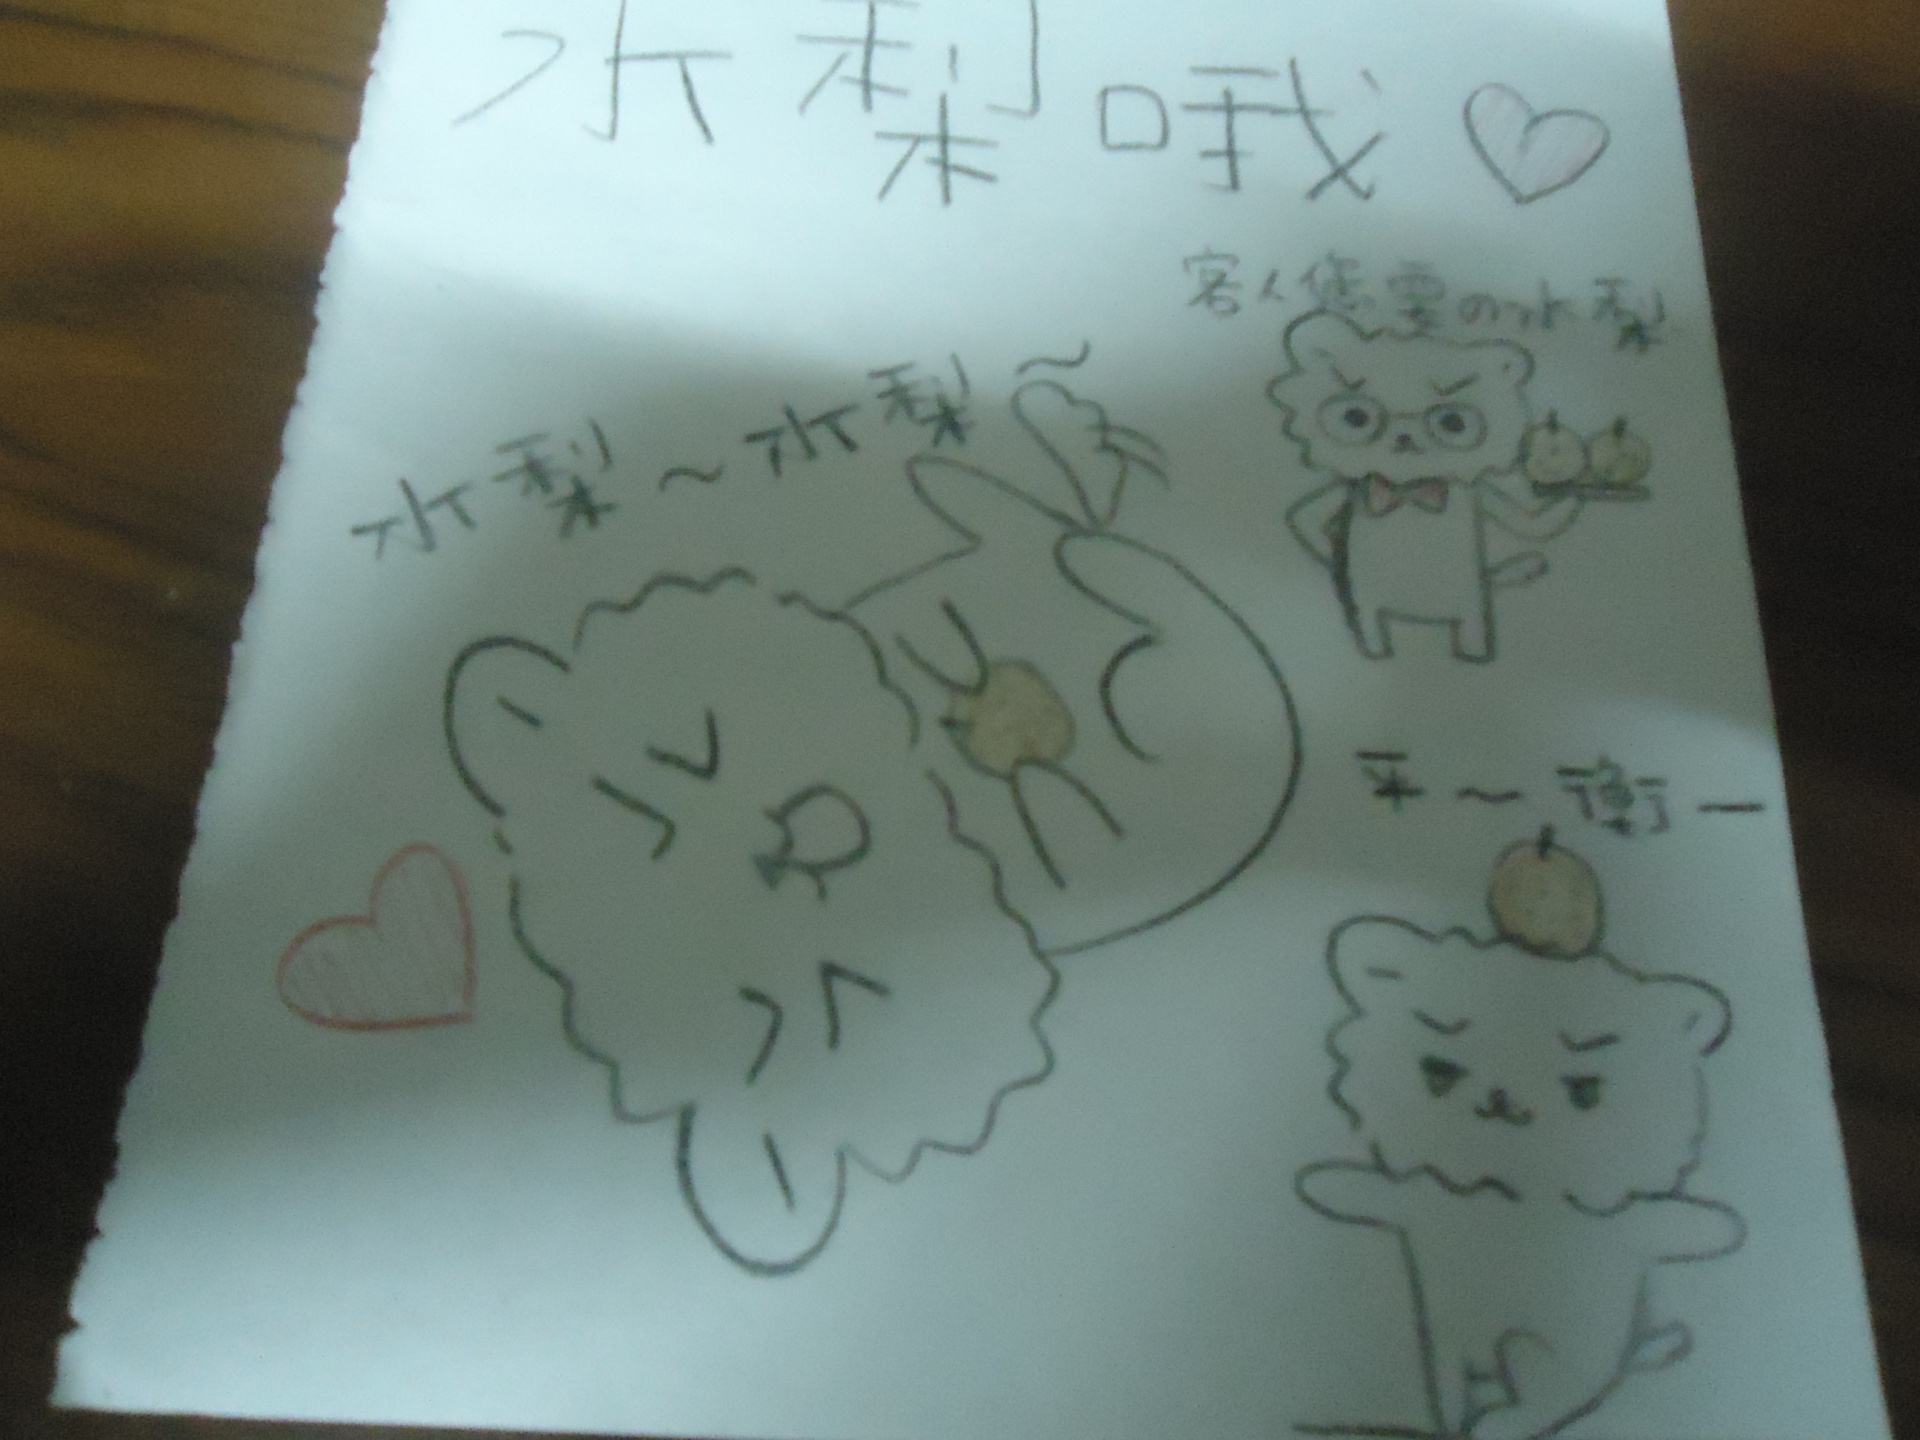 水梨哦
客人您要の水梨
水梨～水梨～
平～衡一